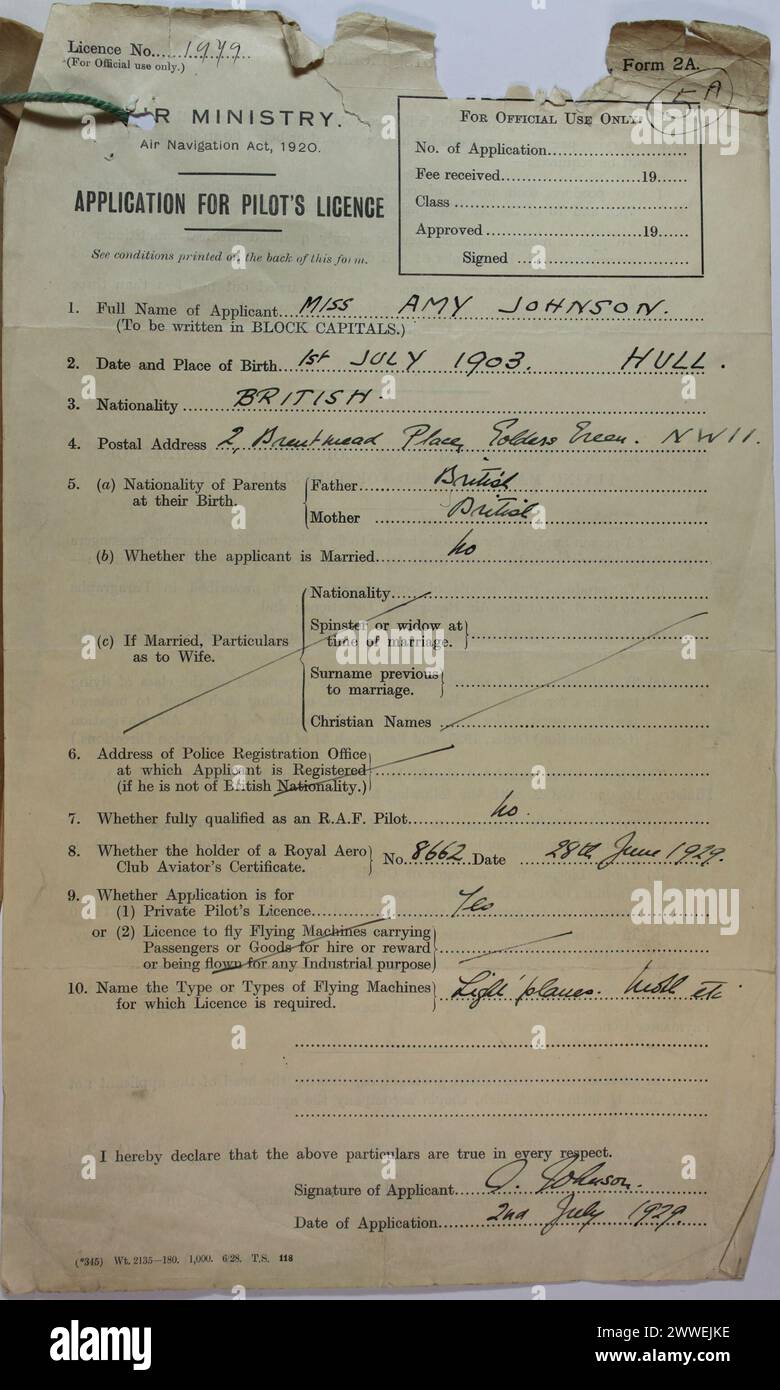 Licence No.....1979
(For Official use only.)
Form 2A.
5A
AIR MINISTRY.
Air Navigation Act, 1920.
APPLICATION FOR PILOT'S LICENCE
See conditions printed on the back of this form.
FOR OFFICIAL USE ONLY.
No. of Application
Fee received 19
Class
Approved 19
Signed
1. Full Name of Applicant MISS AMY JOHNSON.
(To be written in BLOCK CAPITALS.)
2. Date and Place of Birth 1st JULY 1903. HULL.
3. Nationality BRITISH.
4. Postal Address 2, Brentmead Place, Golders Green. NW11.
5. (a) Nationality of Parents at their Birth.
Father British
Mother British
(b) Whether the applicant is Married No
(c) If Married, Particulars as to Wife.
Nationality
Spinster or widow at time of marriage.
Surname previous to marriage.
Christian Names
6. Address of Police Registration Office
at which Applicant is Registered
(if he is not of British Nationality.)
7. Whether fully qualified as an R.A.F. Pilot No.
8. Whether the holder of a Royal Aero
Club Aviator's Certificate. No. 8662 Date 28th June 1929.
9. Whether Application is for
(1) Private Pilot's Licence Yes
or (2) Licence to fly Flying Machines carrying
Passengers or Goods for hire or reward
or being flown for any Industrial purpose
10. Name the Type or Types of Flying Machines
for which Licence is required. Light planes. Moth etc
I hereby declare that the above particulars are true in every respect.
Signature of Applicant A. Johnson.
Date of Application 2nd July 1929.
(*345) Wt. 2135—180. 1,000. 6/28. T.S. 118
alamy
Image ID: 2WWEJKE
www.alamy.com